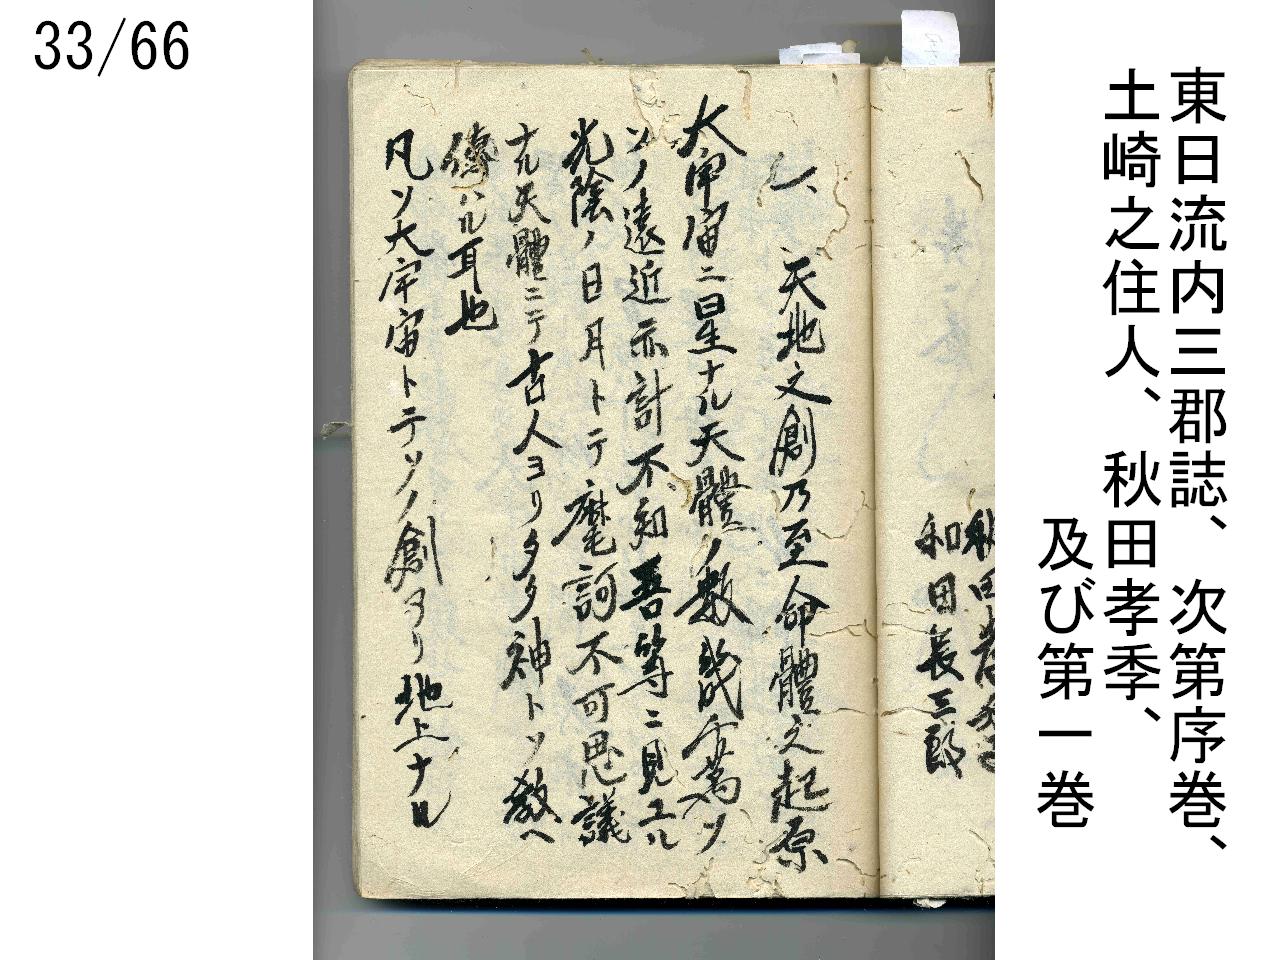 33/66
東日流内三郡誌、次第序巻、
土崎之住人、秋田孝季、
及び第一巻
和田長三郎
一、天地之創乃至命體之起原
大宇宙ニ星ナル天體ノ数幾千萬ソ
ソノ遠近亦計不知吾等ニ見ユル
光陰ノ日月トテ魔訶不可思議
ナル天體ニテ古人ヨリタタ神トソ教ヘ
傳ハル耳也
凡ソ大宇宙トテソノ創ヨリ地上ナル